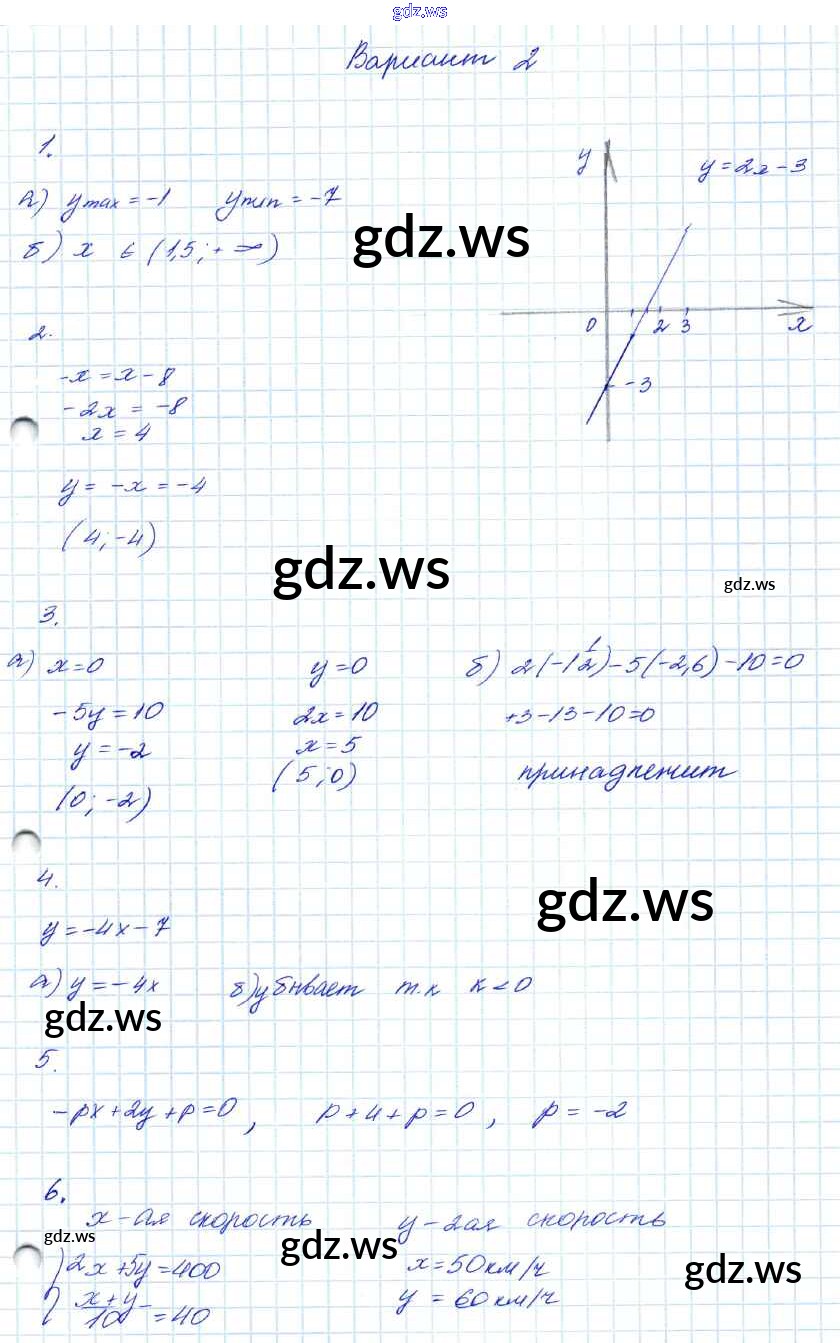 gdz.ws
Вариант 2
1.
а) y max = -1    y min = -7
y = 2x - 3
б) x ∈ (1,5; +∞)
gdz.ws
y
0 2 3 x
-3
2.
-x = x - 8
-2x = -8
x = 4
y = -x = -4
(4; -4)
gdz.ws
gdz.ws
3.
а) x=0    y=0    б) 2(-1 1/2) - 5(-2,6) - 10 = 0
-5y = 10    2x = 10    +3 - 13 - 10 = 0
y = -2    x = 5
(0; -2)    (5; 0)    принадлежит
4.
gdz.ws
y = -4x - 7
а) y = -4x    б) убывает т.к k < 0
gdz.ws
5.
-px + 2y + p = 0,    p + 4 + p = 0,    p = -2
6.
x - ая скорость    y - 2ая скорость
gdz.ws
gdz.ws
2x + 5y = 400    x = 50 км/ч
gdz.ws
x + y / 10 = 40    y = 60 км/ч